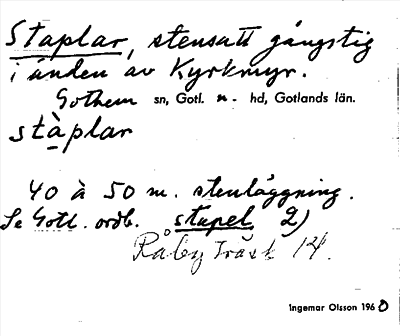 Staplar, stensatt gångstig
i änden av Kyrkmyr.
Gothem sn, Gotl. n. hd, Gotlands län.
stàplar
40 à 50 m. stenläggning.
Se Gotl. ordb. stapel 2)
Råby Träsk 14.
Ingemar Olsson 1960